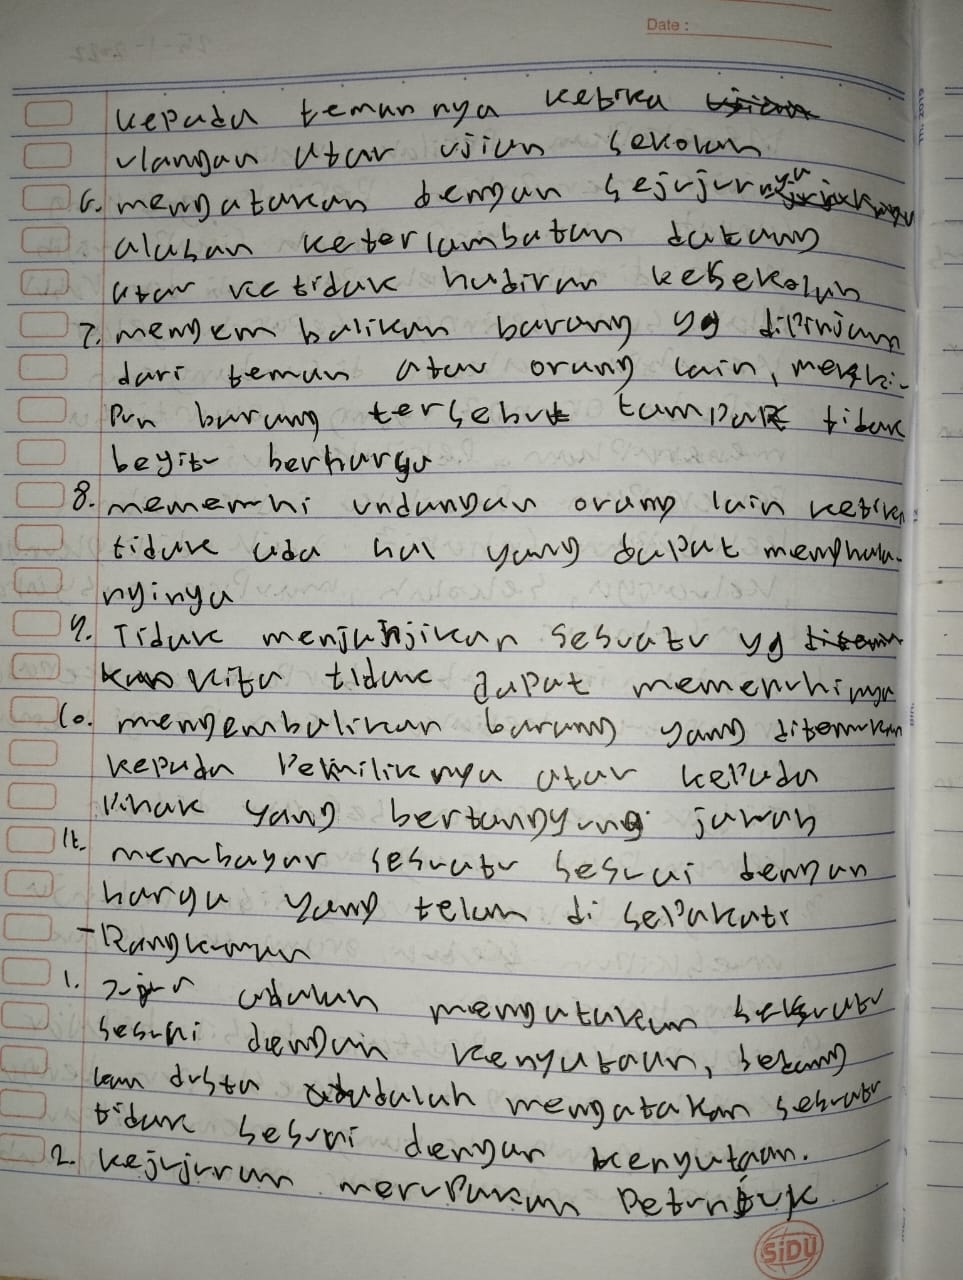 Date :
kepada teman nya ketika
ulangan atau ujian sekolah
6. mengatakan dengan sejujurnya
alasan keterlambatan datang
atau ketidak hadiran kesekolah
7. mengembalikan barang yg dipinjam
dari teman atau orang lain, meski-
pun barang tersebut tampak tidak
begitu berharga
8. memenuhi undangan orang lain ketika
tidak ada hal yang dapat menghala-
nginya
9. Tidak menjanjikan sesuatu yg
kita tidak dapat memenuhinya
10. mengembalikan barang yang ditemukan
kepada Pemiliknya atau kepada
Pihak yang bertanggung jawab
11. membayar sesuatu sesuai dengan
harga yang telah di sepakati
- Rangkuman
1. Jujur adalah mengatakan sesuatu
sesuai dengan kenyataan, sedang
kan dusta adalah mengatakan sesuatu
tidak sesuai dengan kenyataan.
2. kejujuran merupakan Petunjuk
SiDU